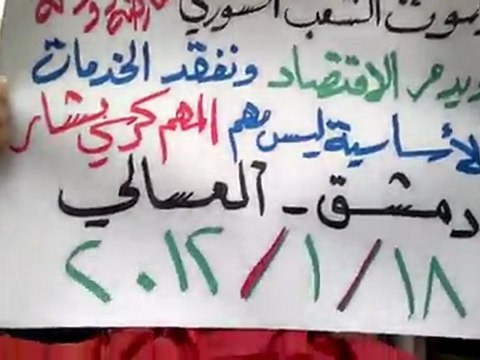 يموت الشعب السوري
ويدمر الاقتصاد ونفقد الخدمات
الأساسية ليس مهم المهم كرسي بشار
دمشق - العسالي
٢٠١٢/١/١٨